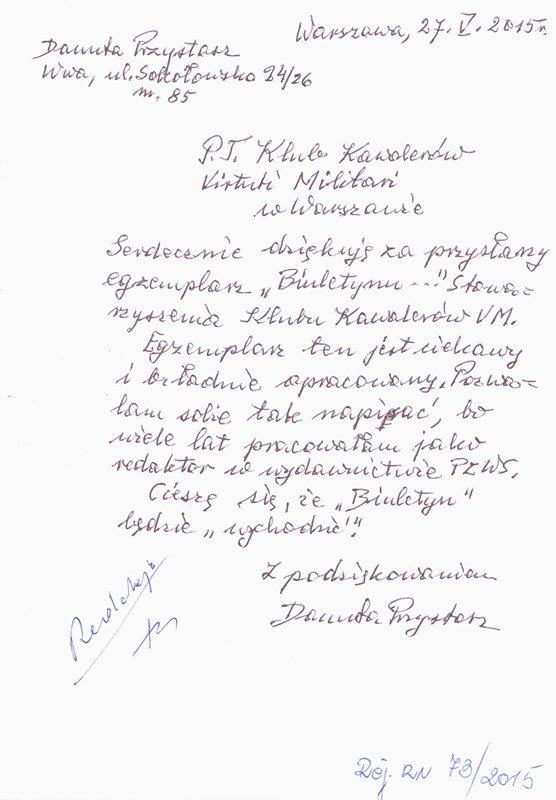 Warszawa, 27.V.2015r.
Danuta Przystasz
Wwa, ul. Sokołowska 24/26
m. 85
P.T. Klub Kawalerów
Virtuti Militari
w Warszawie
Serdecznie dziękuję za przysłany
egzemplarz „Biuletynu..." Stowa=
rzyszenia Klubu Kawalerów VM.
Egzemplarz ten jest ciekawy
i b. ładnie opracowany. Pozwa=
lam sobie tak napisać, bo
wiele lat pracowałam jako
redaktor w wydawnictwie PZWS.
Cieszę się, że „Biuletyn"
będzie „wychodzić"!
Z podziękowaniem
Danuta Przystasz
Redakcja
Rej. RN 73/2015